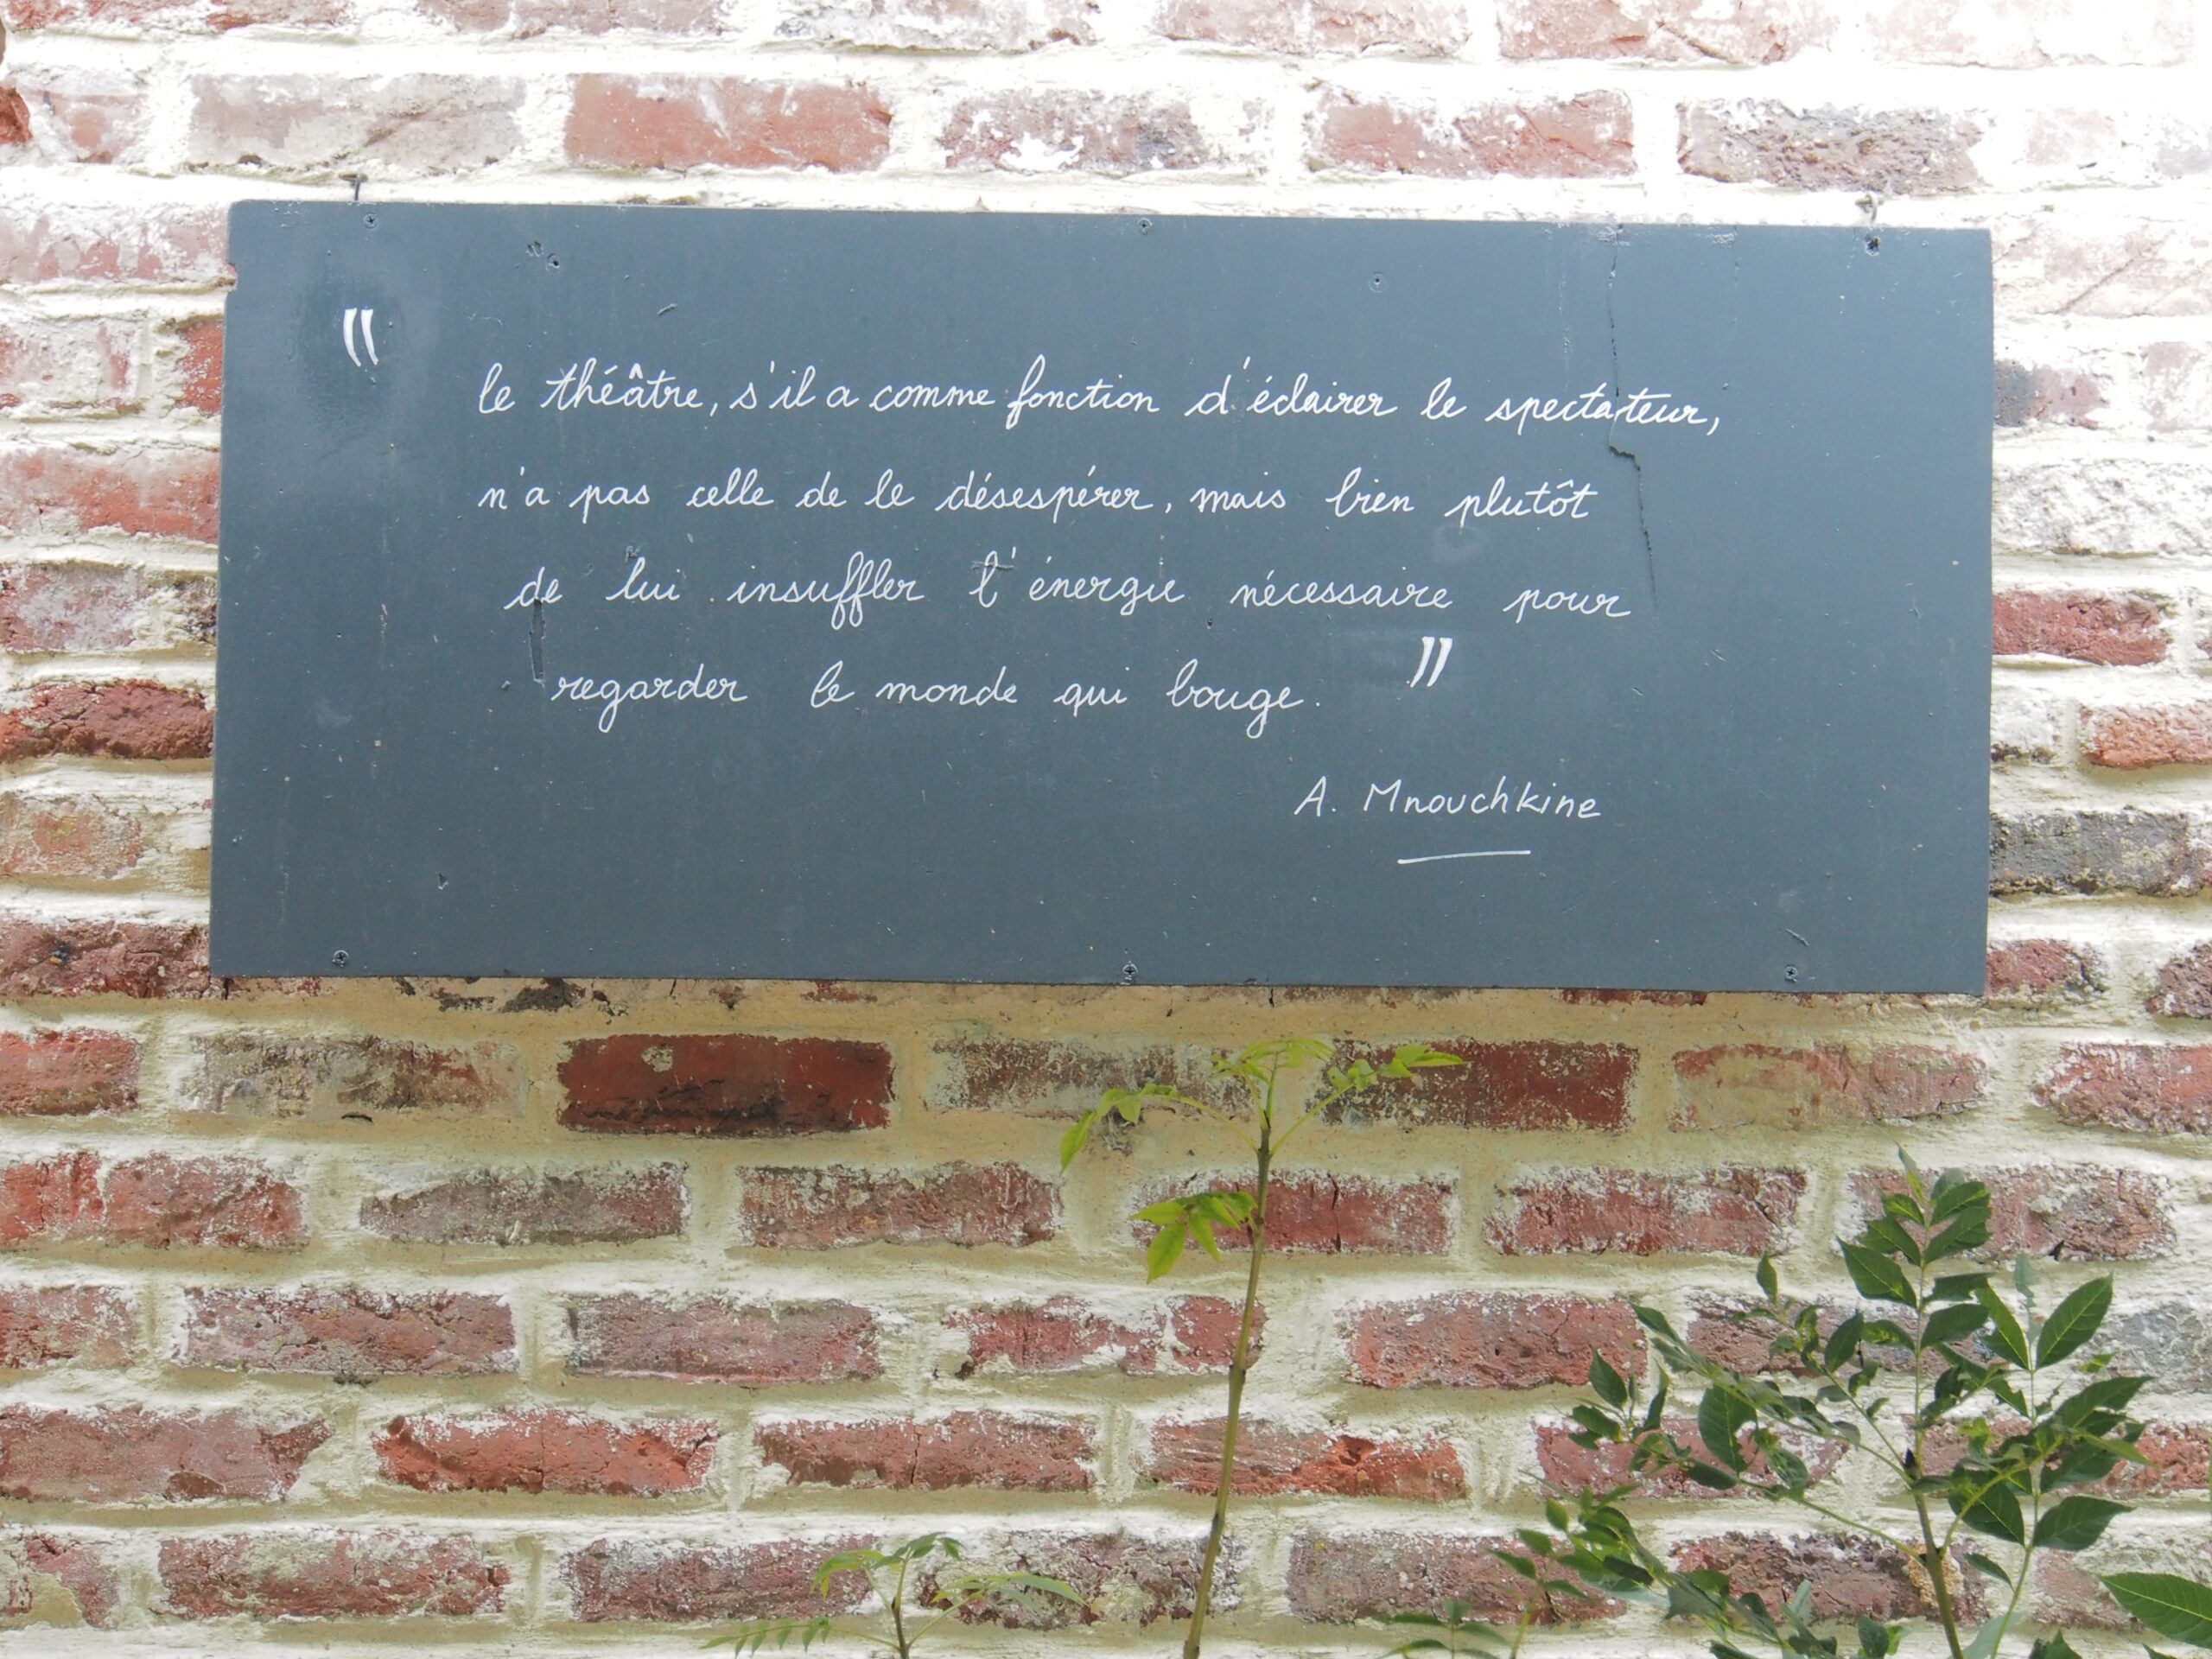 " le théâtre, s'il a comme fonction d'éclairer le spectateur,
n'a pas celle de le désespérer, mais bien plutôt
de lui insuffler l'énergie nécessaire pour
regarder le monde qui bouge. "
A. Mnouchkine